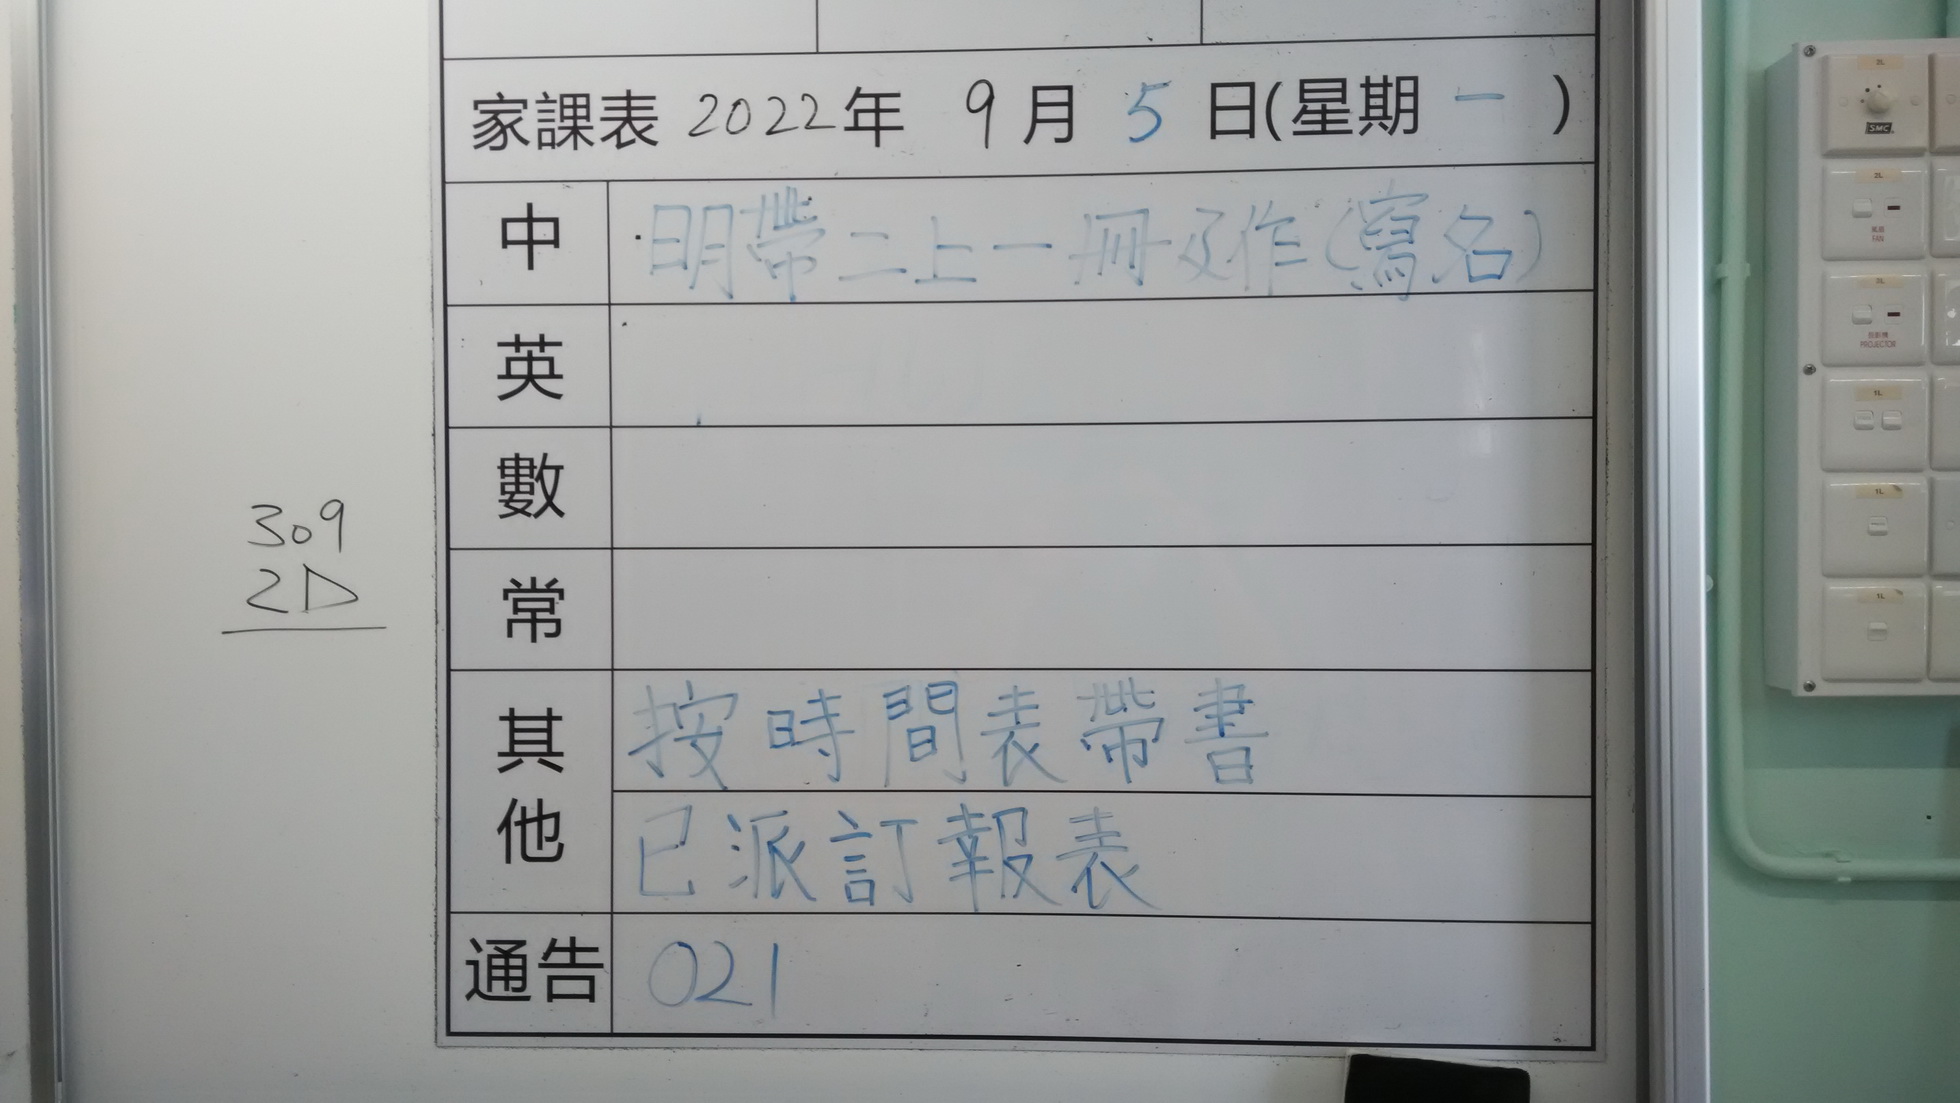 家課表 2022年 9月5日(星期一)
中 明帶二上一冊及作(寫名)
英
數
常
其他 按時間表帶書
已派訂報表
通告 021
309
2D
2L
SMC
2L
FAN
2L
PROJECTOR
1L
1L
1L